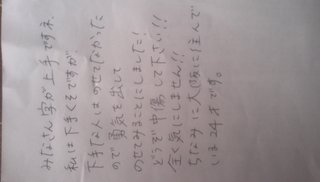 みなさん字が上手ですネ
私は下手くそですが、
下手な人はのせてなかった
ので勇気を出して
のせてみることにしました!
どうぞ中傷して下さい!!
全く気にしません!!
ちなみに大阪に住んで
いる24才です。